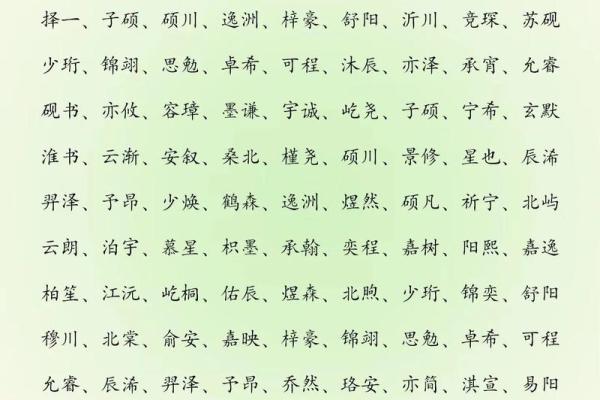 择一、子硕、硕川、逸洲、梓豪、舒阳、沂川、竞琛、苏砚
少珩、锦翊、思勉、卓希、可程、沐辰、亦泽、承宵、允睿
砚书、亦攸、容璋、墨谦、宇诚、屹尧、子硕、宁希、玄默
淮书、云渐、安叙、桑北、槿尧、硕川、景修、星也、辰浠
羿泽、予昂、少焕、鹤森、逸洲、煜然、硕凡、祈宁、北屿
云朗、泊宇、慕星、枳墨、承翰、奕程、嘉树、阳熙、嘉逸
柏笙、江沅、屹桐、佑辰、煜森、北煦、少珩、锦奕、舒阳
穆川、北棠、俞安、嘉映、梓豪、锦翊、思勉、卓希、可程
允睿、辰浠、羿泽、予昂、乔然、珞安、亦简、淇宣、易阳